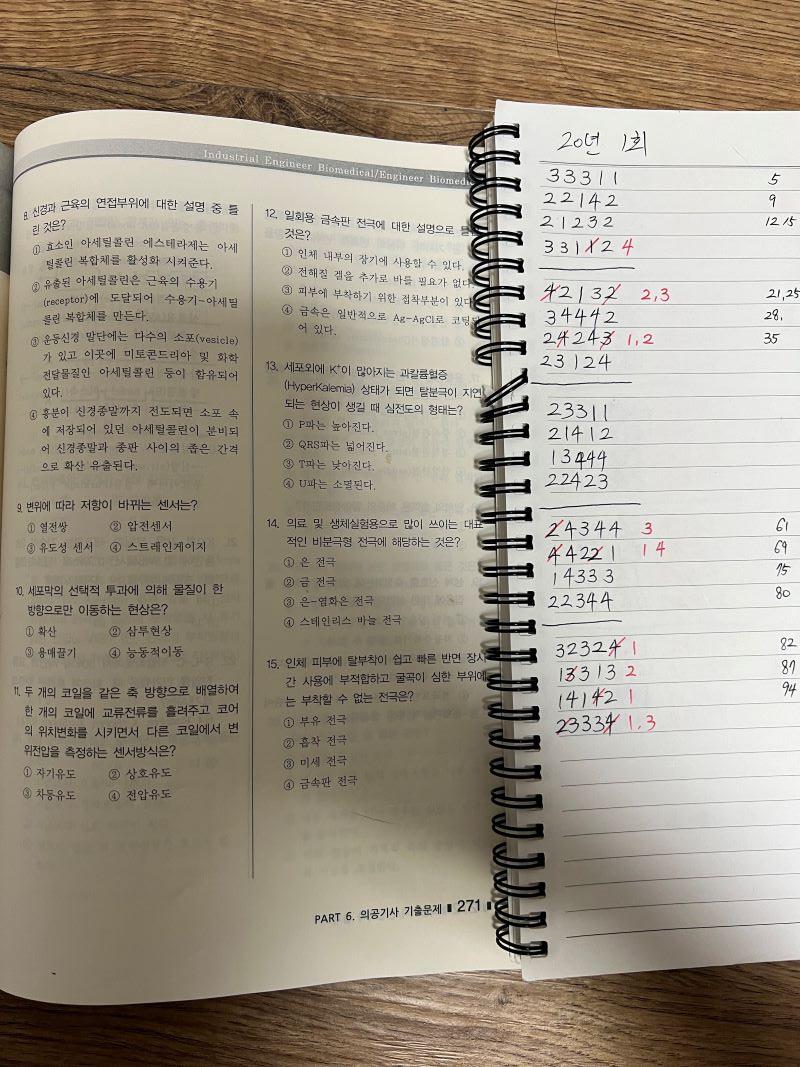 Industrial Engineer Biomedical/Engineer
8. 신경과 근육의 연접부위에 대한 설명 중 틀
린 것은?
① 효소인 아세틸콜린 에스테라제는 아세
틸콜린 복합체를 활성화 시켜준다.
② 유출된 아세틸콜린은 근육의 수용기
(receptor)에 도달되어 수용기-아세틸
콜린 복합체를 만든다.
③ 운동신경 말단에는 다수의 소포(vesicle)
가 있고 이곳에 미토콘드리아 및 화학
전달물질인 아세틸콜린 등이 함유되어
있다.
④ 흥분이 신경종말까지 전도되면 소포 속
에 저장되어 있던 아세틸콜린이 분비되
어 신경종말과 종판 사이의 좁은 간격
으로 확산 유출된다.
9. 변위에 따라 저항이 바뀌는 센서는?
① 열전쌍 ② 압전센서
③ 유도성 센서 ④ 스트레인게이지
10. 세포막의 선택적 투과에 의해 물질이 한
방향으로만 이동하는 현상은?
① 확산 ② 삼투현상
③ 용매끌기 ④ 능동적이동
11. 두 개의 코일을 같은 축 방향으로 배열하여
한 개의 코일에 교류전류를 흘려주고 코어
의 위치변화를 시키면서 다른 코일에서 변
위전압을 측정하는 센서방식은?
① 자기유도 ② 상호유도
③ 차동유도 ④ 전압유도
12. 일회용 금속판 전극에 대한 설명으로
것은?
① 인체 내부의 장기에 사용할 수 있다.
② 전해질 겔을 추가로 바를 필요가 없다.
③ 피부에 부착하기 위한 접착부분이 있다
④ 금속은 일반적으로 Ag-AgCl로 코팅되
어 있다.
13. 세포외에 K+이 많아지는 과칼륨혈증
(HyperKalemia) 상태가 되면 탈분극이 지연
되는 현상이 생길 때 심전도의 형태는?
① P파는 높아진다.
② QRS파는 넓어진다.
③ T파는 낮아진다.
④ U파는 소멸된다.
14. 의료 및 생체실험용으로 많이 쓰이는 대표
적인 비분극형 전극에 해당하는 것은?
① 은 전극
② 금 전극
③ 은-염화은 전극
④ 스테인리스 바늘 전극
15. 인체 피부에 탈부착이 쉽고 빠른 반면 장시
간 사용에 부적합하고 굴곡이 심한 부위에
는 부착할 수 없는 전극은?
① 부유 전극
② 흡착 전극
③ 미세 전극
④ 금속판 전극
PART 6. 의공기사 기출문제 271
20년 1회
33311 5
22142 9
21232 12 15
33112 4
42132 2,3 21,25
34442 28,
24243 1,2 35
23124
23311
21412
13444
22423
24344 3 61
44221 1 4 69
14333 75
22344 80
32324 1 82
13313 2 87
14142 1 94
23334 1,3